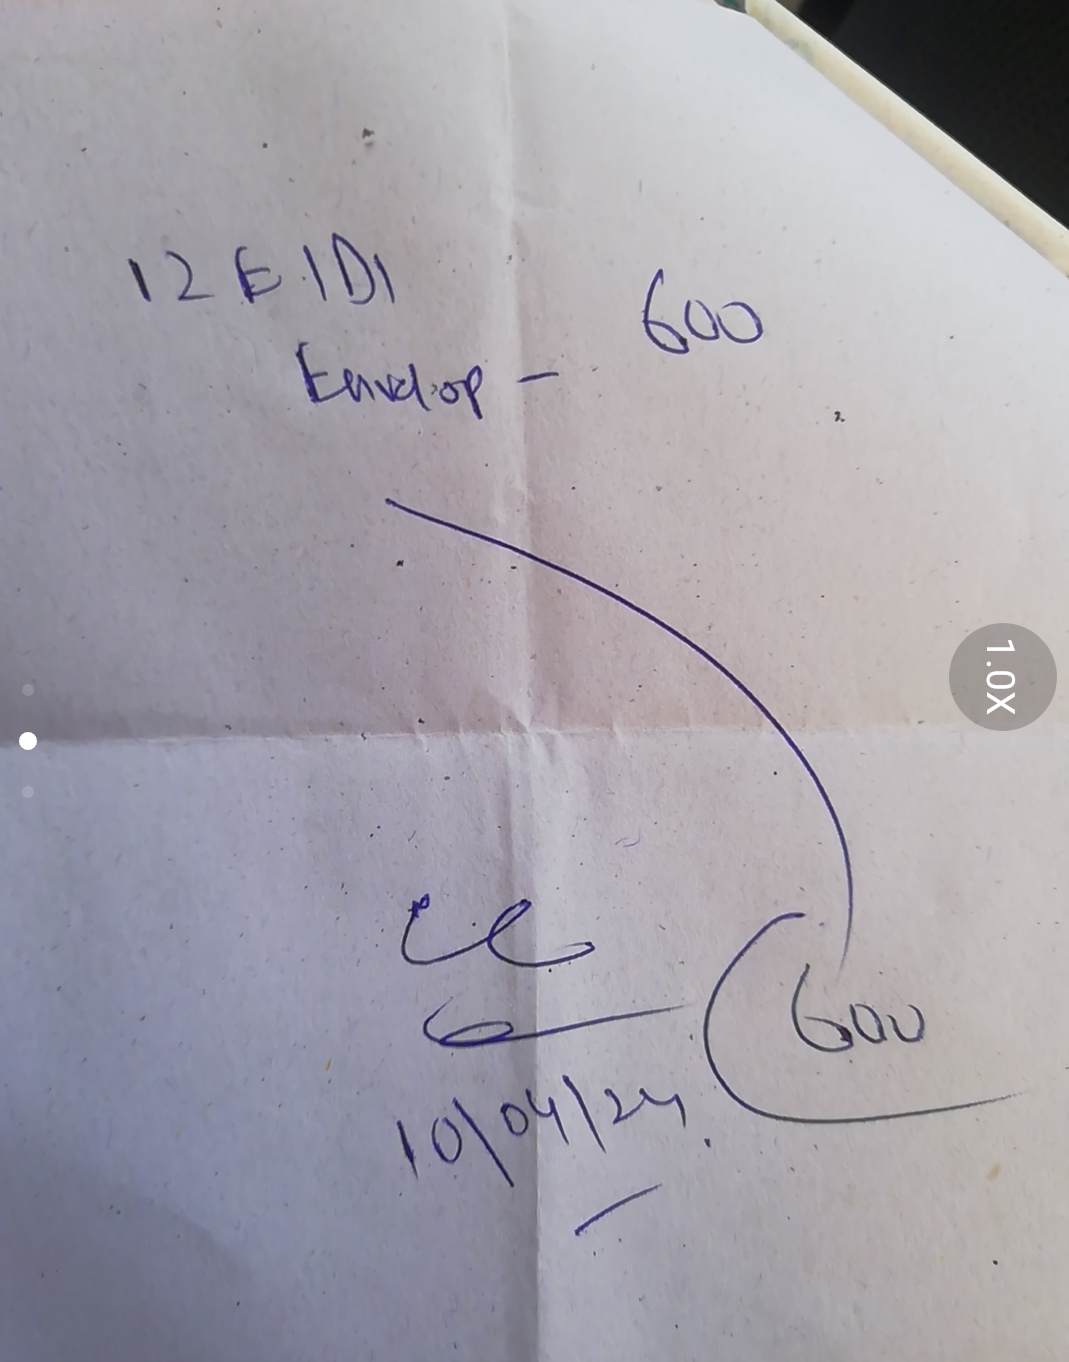 12 EIDI
Envelop - 600
600
10/04/24.
1.0X